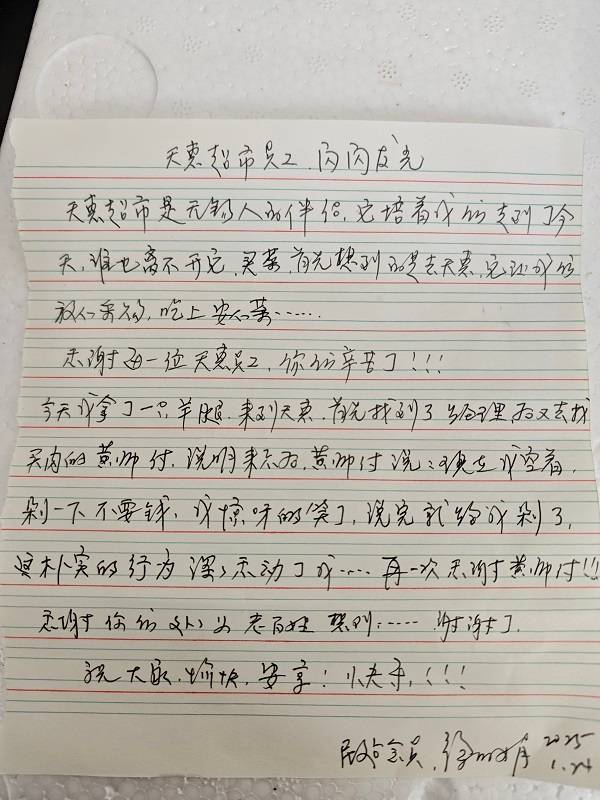 天惠超市员工、闪闪发光
天惠超市是无锡人的伴侣，它培着我们走到了今
天，谁也离不开它，买菜，首先想到的是去天惠，它让我们
放心采购，吃上安心菜……
感谢每一位天惠员工，你们辛苦了！！！
今天我拿了一只羊腿，来到天惠，首先找到了经理后又去找
买肉的黄师付，说明来意后，黄师付说：现在我空着，
剁一下不要钱，我惊呀的笑了，说完就给我剁了，
这朴实的行为深深感动了我……再一次感谢黄师付!!!
感谢你们处处为老百姓想到……谢谢了。
祝大家，愉快，安享！小快乐，！！！
会员，徐
2025
1.24